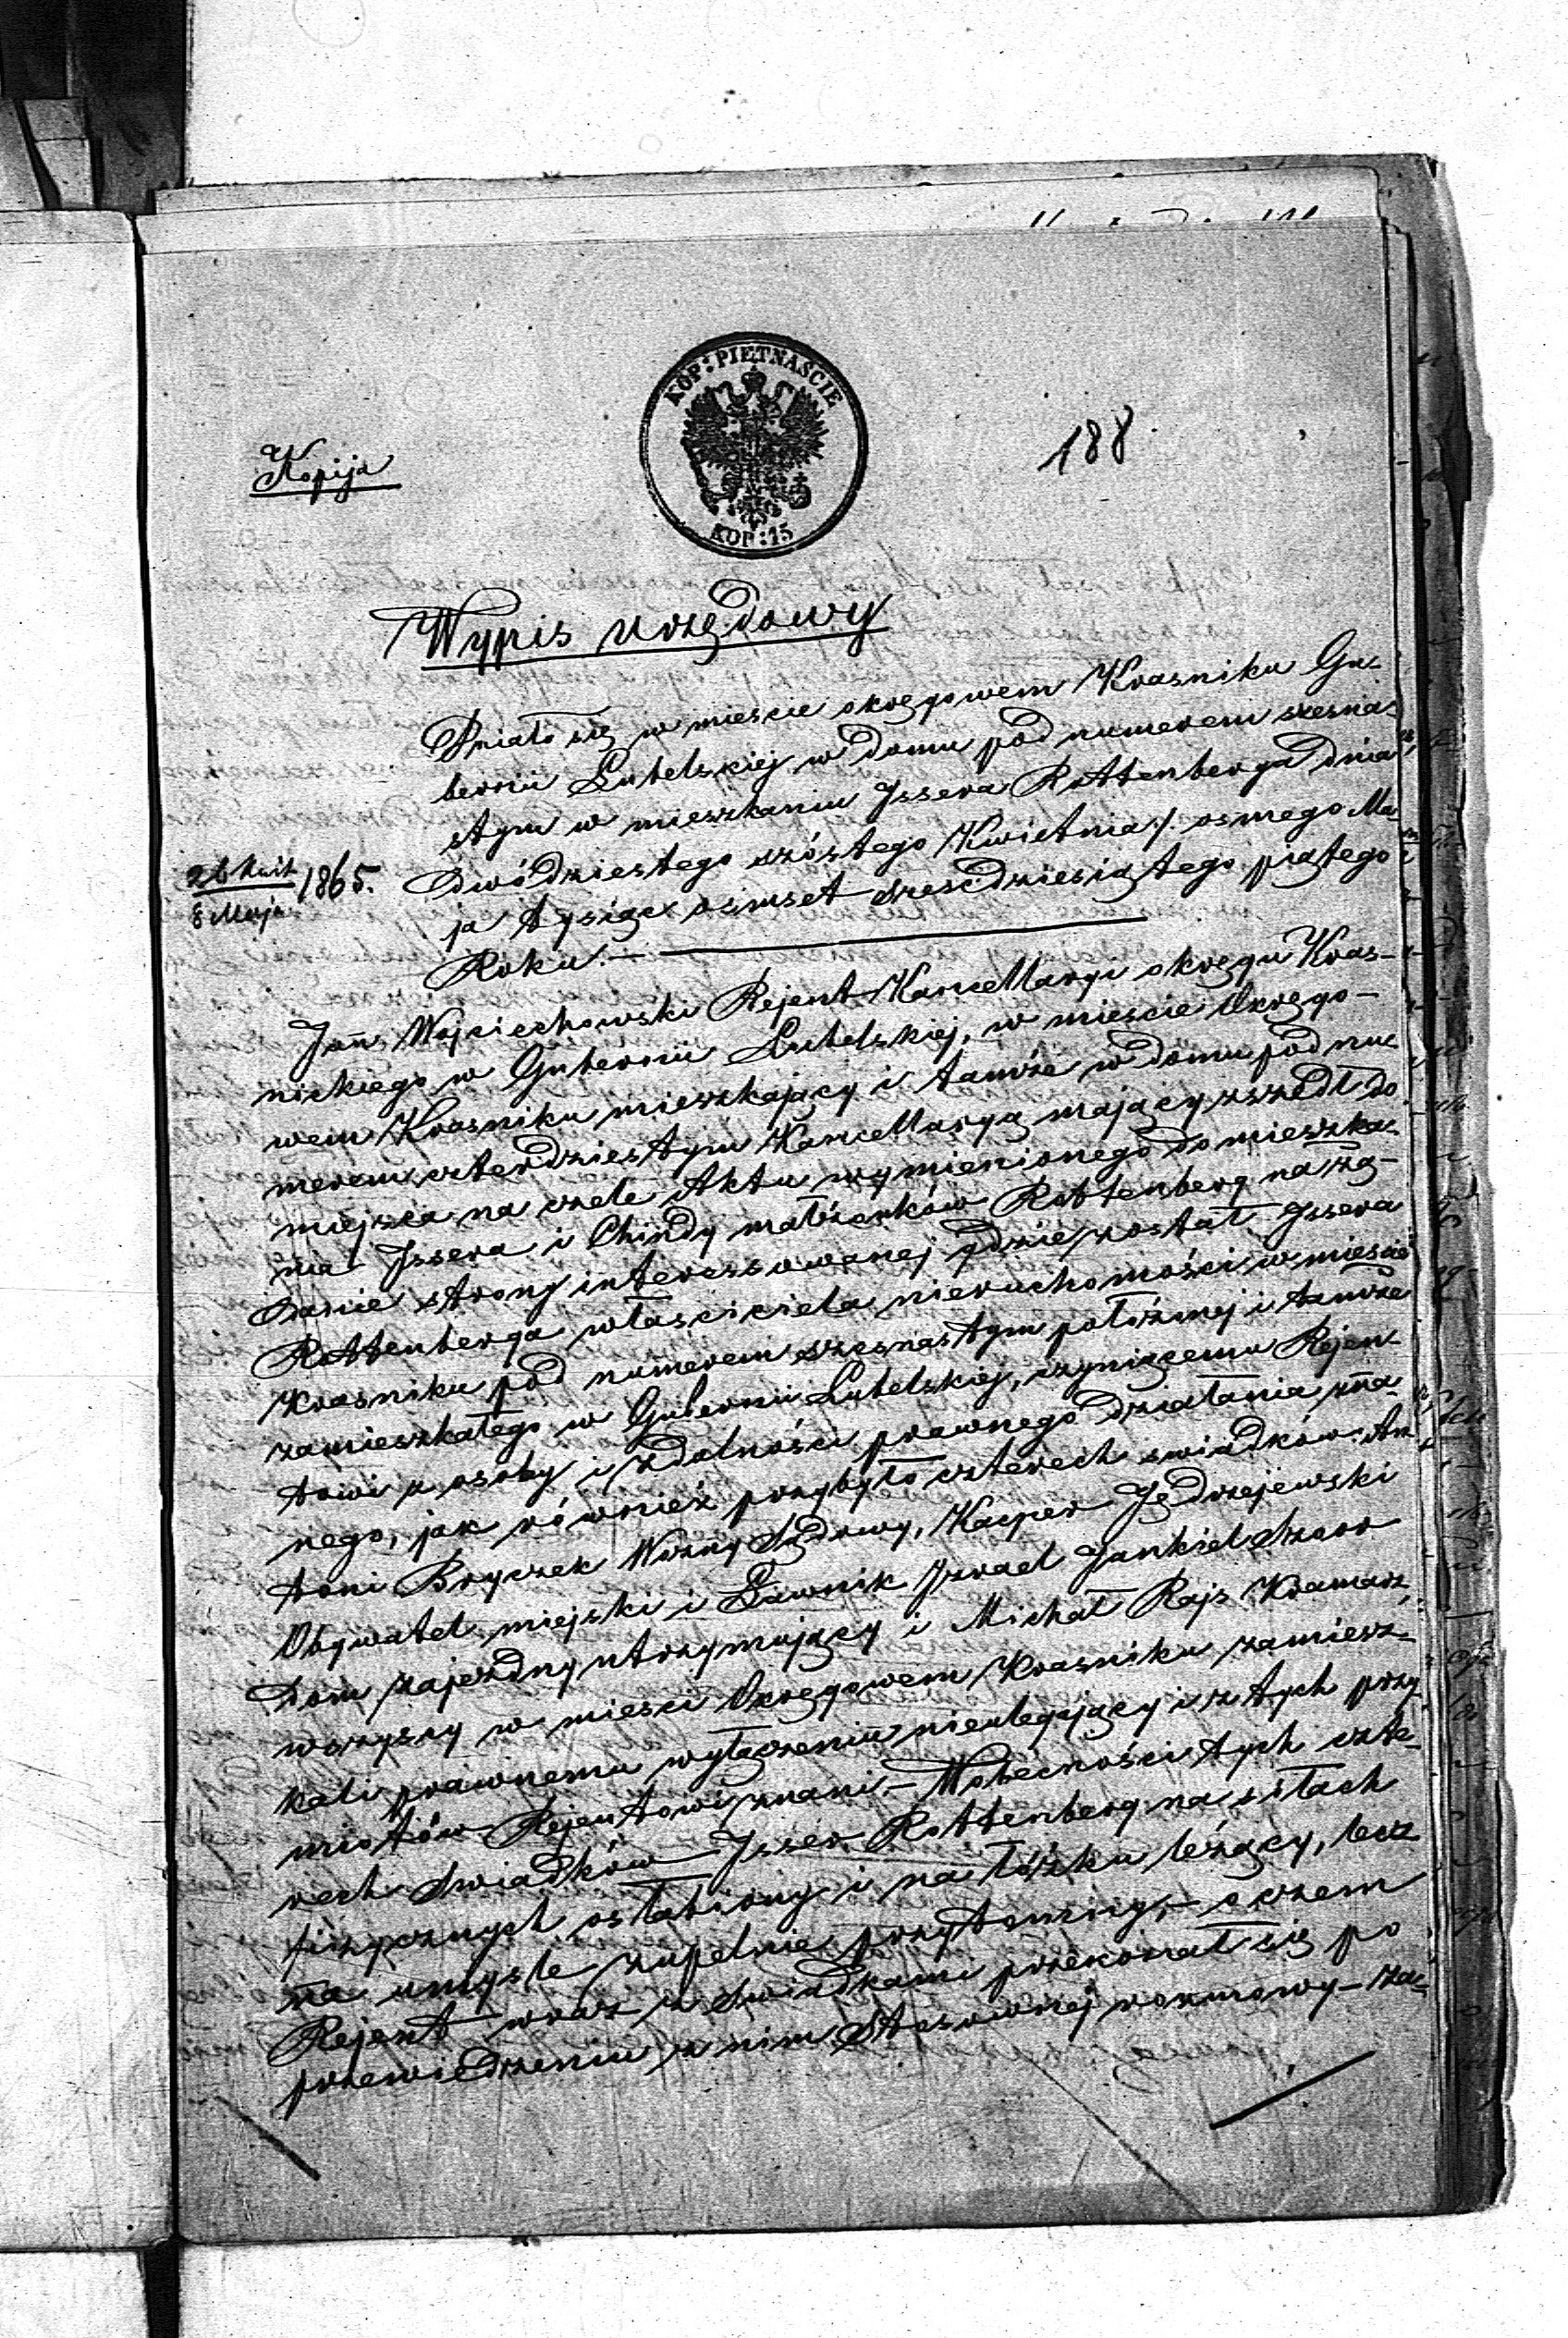 KOP: PIĘTNAŚCIE
KOP: 15
188
Kopija
Wypis urzędowy
Działo się w mieście okręgowem Krasniku Gu-
bernii Lubelskiej w domu pod numerem szesna-
stym w mieszkaniu Jssera Rottenberga dnia
26 Kwit
8 Maja 1865.
dwódziestego szóstego Kwietnia /. osmego Ma
ja tysiąc osimset sześcdziesiątego piątego
Roku. —
Jan Wojciechowski Rejent Kancellaryi okręgu Kras-
nickiego w Gubernii Lubelskiej, w mieście Okręgo-
wem Krasniku mieszkający i tamże w domu pod nu-
merem czterdziestym Kancellaryą mający zszedł do
miejsca na czele Aktu wymienionego do mieszka-
nia Jssera i Chindy małżonków Rottenberg na żą-
danie strony interessowanej gdzie został Jssera
Rottenberga właściciela nieruchomości w mieście
Krasniku pod numerem szesnastym położonej i tamże
zamieszkałego w Gubernii Lubelskiej, czyniącemu Rejen-
towi z osoby i zdolności prawnego działania zna-
nego, jak również przybyło czterech swiadków: An
toni Bryczek Wozny Sądowy, Kacper Jędrzejewski
Obywatel miejski i Ławnik Jzrael Jankiel Szorr
Dom zajezdny utrzymujący i Michał Rajs Kramarz
wszyscy w mieści Okręgowem Krasniku zamiesz-
kali prawnemu wyłączeniu nieulegający i z tych przy
miotów Rejentowi znani. — Wobecności tych czte-
rech Swiadków Jsser Rottenberg na siłach
fizycznych osłabiony i na łóżku leżący, lecz
na umyśle zupełnie przytomny, — o czem
Rejent wraz z Swiadkami przekonał się po
przewiedzeniu z nim stosownej rozmowy — za-